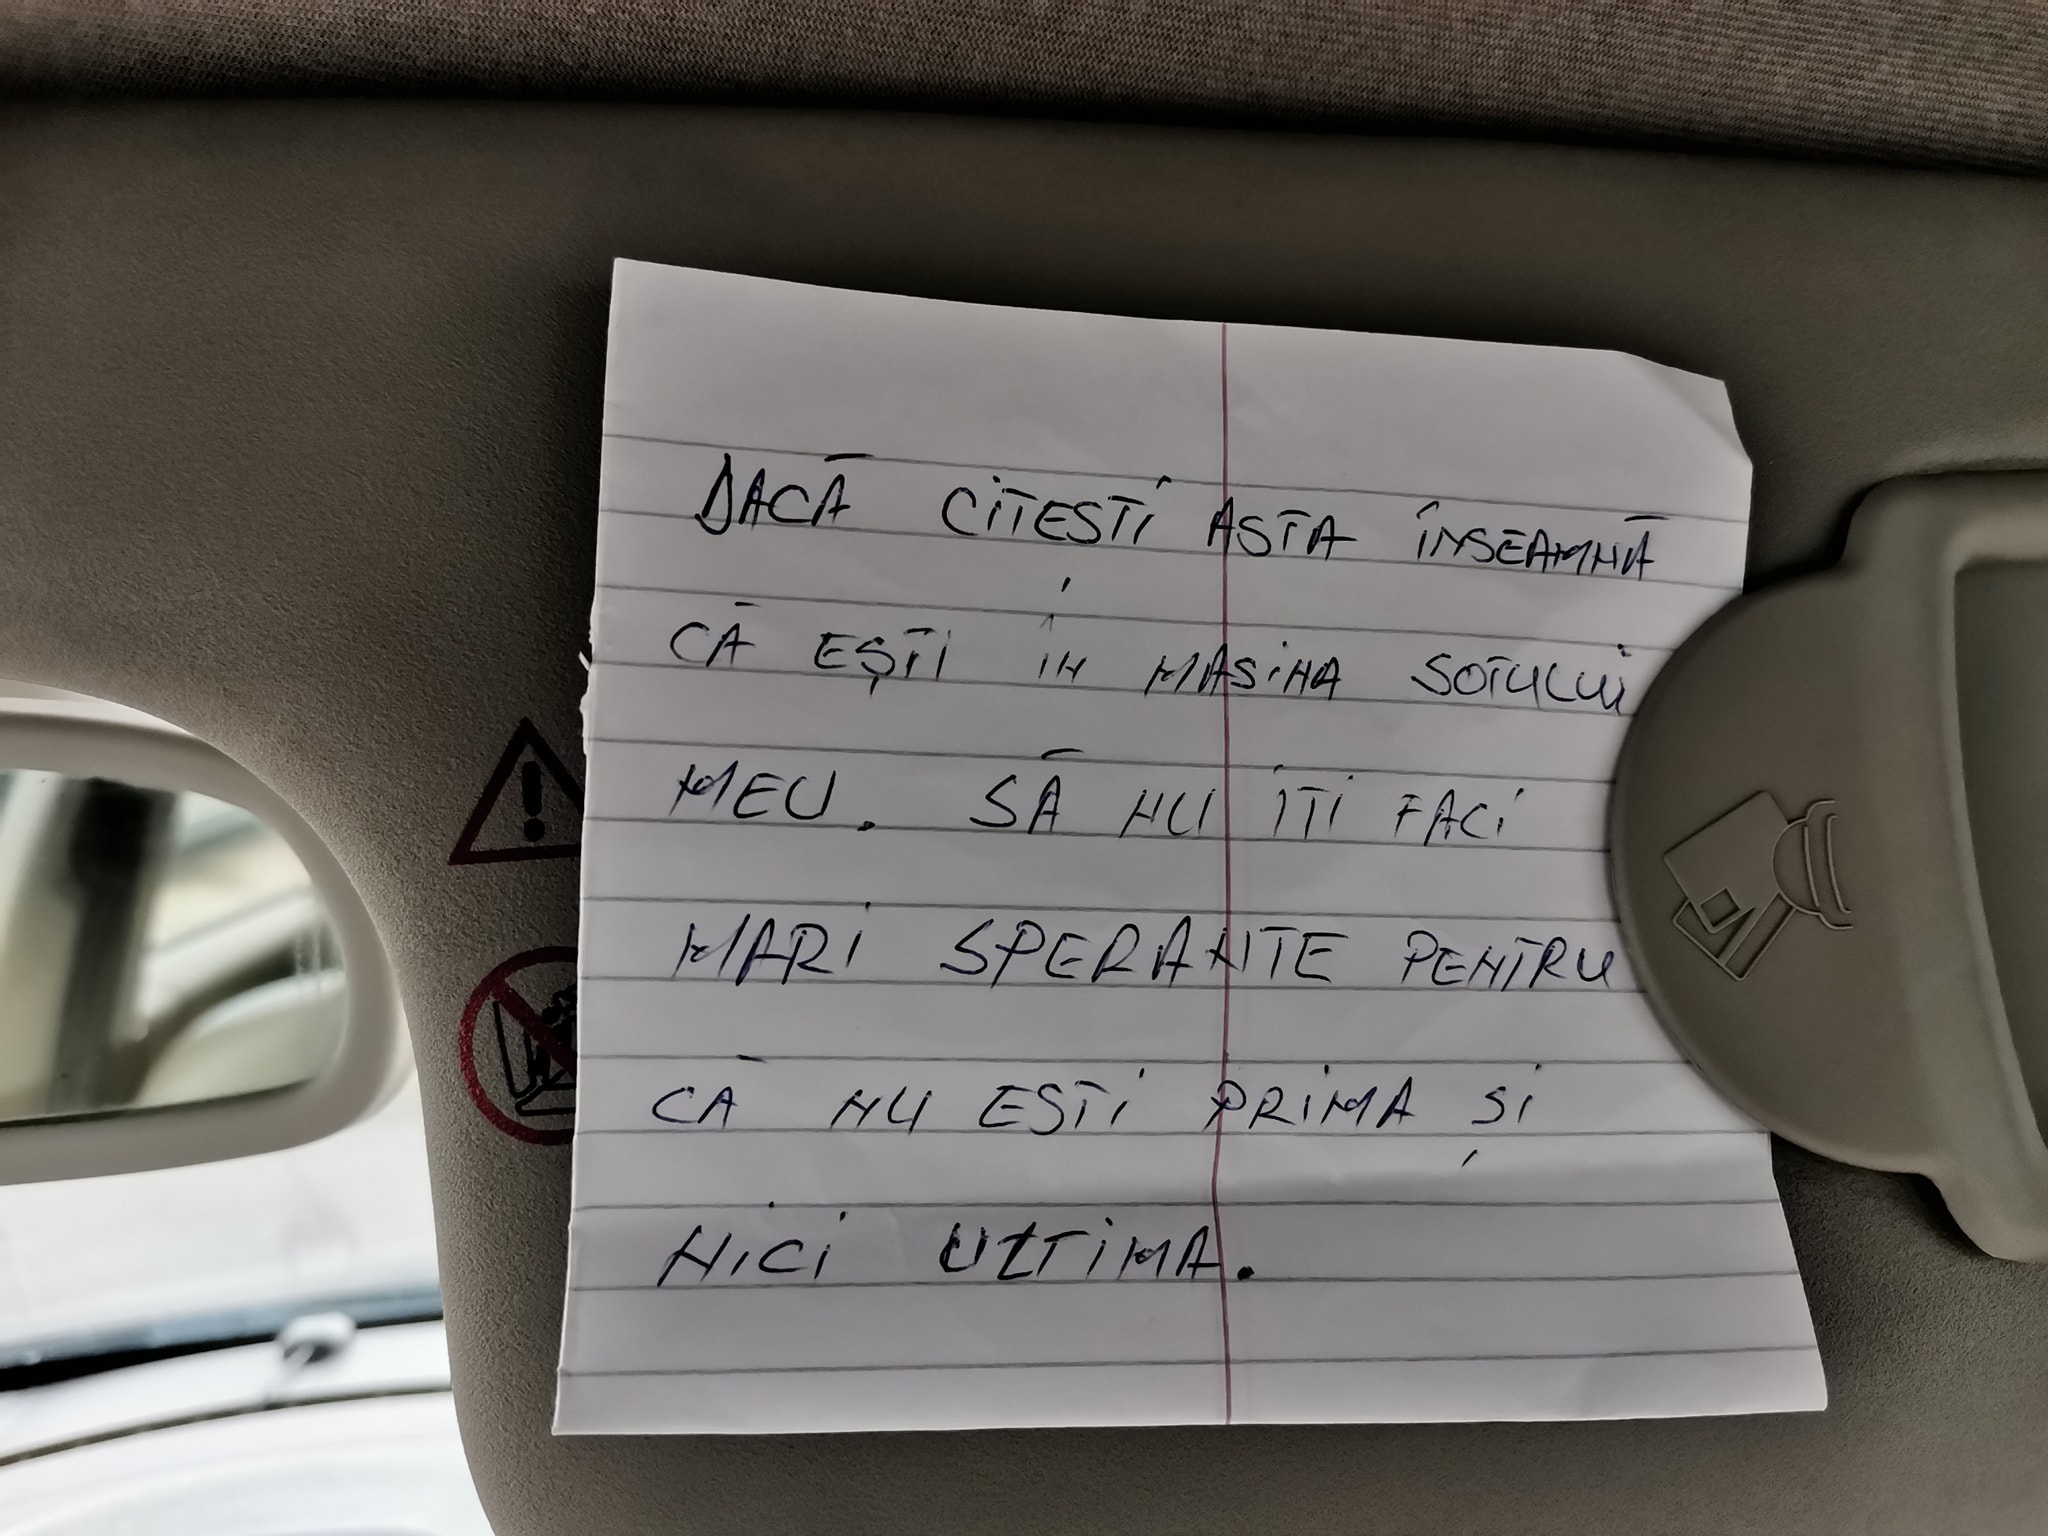 DACĂ CITESTI ASTA ÎNSEAMNĂ
CĂ EȘTI ÎN MASINA SOTULUI
MEU. SĂ NU ITI FACI
MARI SPERANTE PENTRU
CĂ NU ESTI PRIMA ȘI
NICI ULTIMA.